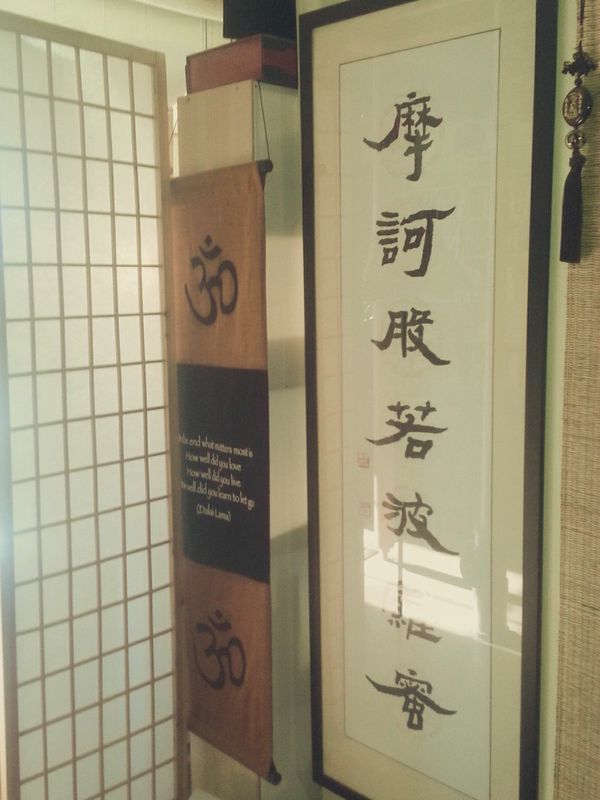 ॐ
In the end what matters most is
How well did you love
How well did you live
How well did you learn to let go
(Dalai Lama)
ॐ
摩訶般若波羅蜜